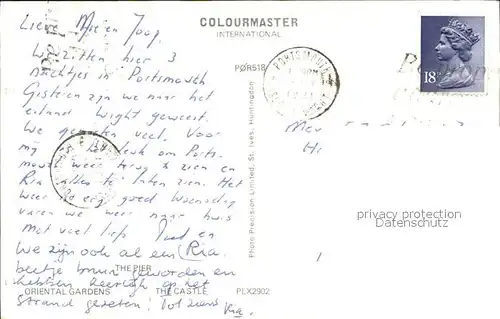 COLOURMASTER
INTERNATIONAL
PØR518
PORTSMOUTH
18P
Lieve Mie en Joop.
We zitten hier 3
nachtjes in Portsmouth
Gisteren zijn we naar het
eiland Wight geweest.
We genieten veel. Voor
mij leuk om Ports-
mouth weer terug te zien en
Ria alles te laten zien. Het
weer is erg goed Woensdag
varen we weer naar huis
Met veel liefs en
Ria.
We zijn ook al een
beetje bruin geworden en
hebben heerlijk op het
strand gezeten! Tot ziens
Ria.
THE PIER
ORIENTAL GARDENS THE CASTLE PLX2902
Photo Precision Limited, St. Ives, Huntingdon
privacy protection
Datenschutz